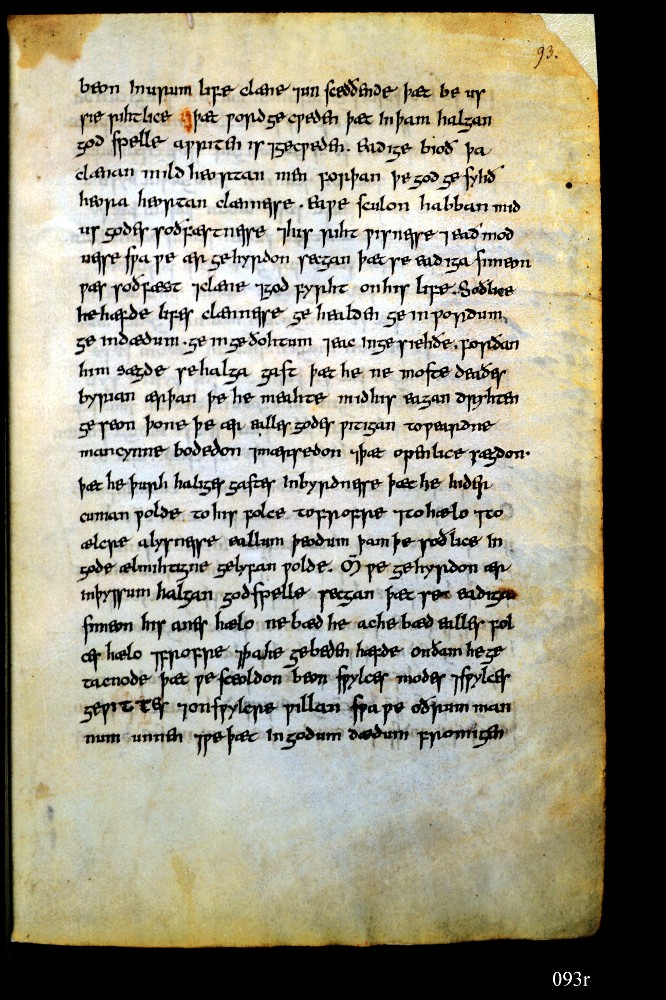 93.
beon In urum life clæne ⁊ unsceððende þæt be us
sie rihtlice ⁊ þæt word gecweden þæt In þam halgan
god spelle awriten is ⁊ gecweden. Eadige bioð þa
clænan mildheortan men forþan þe god gesyhð
heora heortan clænnesse. Ea we sculon habban mid
us godes soðfæstnesse ⁊ his riht wisnesse ⁊ eadmod
nesse swa we ær gehyrdon secgan þæt se eadiga simeon
wæs soðfæst ⁊ clæne ⁊ god fyrht on his life. Soðlice
he hæfde lifes clænnesse gehealden ge in wordum,
ge in dædum. ge in geðohtum ⁊ eac in gesiehðe. forðan
him sægde se halga gast þæt he ne moste deaðes
byrian ærþan þe he meahte mid his eagan dryhten
geseon þone þe ær ealles godes witigan toweardne
mancynne bodedon ⁊ mærsedon ⁊ þæt openlice sægdon.
þæt he þurh haliges gastes Inbyrdnesse þæt he hider
cuman wolde to his folce to frofre ⁊ to hælo ⁊ to
ælcre alysnesse eallum þeodum þam þe soðlice In
gode ælmihtigne gelyfan wolde. M̄ we gehyrdon ær
in þyssum halgan godspelle secgan þæt se eadiga
simeon his anes hælo ne bæd he ac he bæd ealles fol
ces hælo ⁊ frofre ⁊ þa he gebeden hæfde on ðam he ge
tacnode þæt we sceoldon beon swylces modes ⁊ swylces
gewittes ⁊ on swylcre willan swa we oðrum man
num unnen ⁊ we þæt In godum dædum fromigen
093r